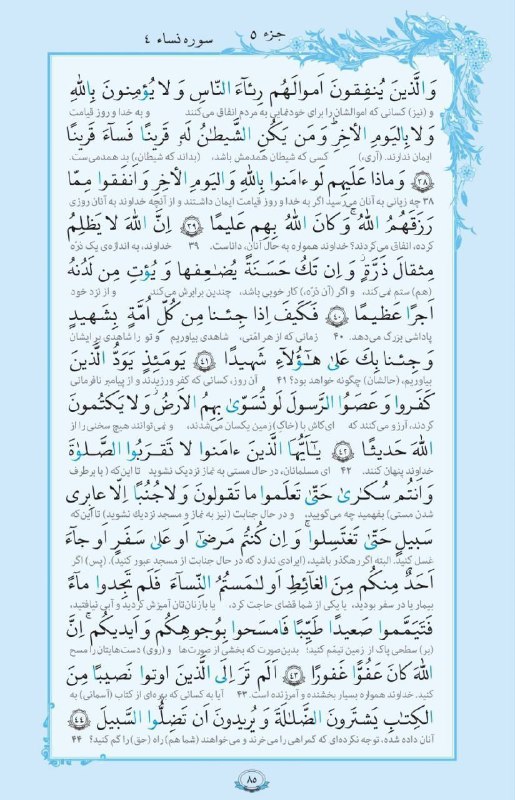 جزء ۵
سوره نساء ۴
وَ الَّذینَ یُنفِقونَ اَموالَهُم رِئآءَ النّاسِ وَ لا یُؤمِنونَ بِاللهِ
و (نیز) کسانی که اموالشان را برای خودنمایی به مردم انفاق می‌کنند و به خدا و روز قیامت
وَ لا بِالیَومِ الآخِرِ وَ مَن یَکُنِ الشَّیطٰنُ لَه قَرینًا فَسآءَ قَرینًا
ایمان ندارند. (آری،) کسی که شیطان همدمش باشد، (بداند که شیطان،) بد همدمی‌ست.
﴿۳۸﴾ وَ ماذا عَلَیهِم لَو ءامَنوا بِاللهِ وَ الیَومِ الآخِرِ وَ اَنفَقوا مِمّا
۳۸ چه زیانی به آنان می‌رسید اگر به خدا و روز قیامت ایمان داشتند و از آنچه خداوند به آنان روزی
رَزَقَهُمُ اللهُ وَ کانَ اللهُ بِهِم عَلیمًا ﴿۳۹﴾ اِنَّ اللهَ لا یَظلِمُ
کرده، انفاق می‌کردند؟ خداوند همواره به حال آنان، داناست. ۳۹ خداوند، به اندازه‌ی یک ذرّه
مِثقالَ ذَرَّةٍ وَ اِن تَکُ حَسَنَةً یُضٰعِفها وَ یُؤتِ مِن لَدُنهُ
(هم) ستم نمی‌کند، و اگر (آن ذرّه،) کار خوبی باشد، چندین برابرش می‌کند و از نزد خود
اَجرًا عَظیمًا ﴿۴۰﴾ فَکَیفَ اِذا جِئنا مِن کُلِّ اُمَّةٍ بِشَهیدٍ
پاداشی بزرگ می‌دهد. ۴۰ زمانی که از هر امّتی، شاهدی بیاوریم و تو را شاهدی بر ایشان
وَ جِئنا بِکَ عَلیٰ هٰؤُلآءِ شَهیدًا ﴿۴۱﴾ یَومَئِذٍ یَوَدُّ الَّذینَ
بیاوریم، (حالشان) چگونه خواهد بود؟ ۴۱ آن روز، کسانی که کفر ورزیدند و از پیامبر نافرمانی
کَفَروا وَ عَصَوُا الرَّسولَ لَو تُسَوّیٰ بِهِمُ الاَرضُ وَ لا یَکتُمونَ
کردند، آرزو می‌کنند که ای‌کاش با (خاک) زمین یکسان می‌شدند، و نمی‌توانند هیچ سخنی را از
اللهَ حَدیثًا ﴿۴۲﴾ یٰٓاَیُّهَا الَّذینَ ءامَنوا لا تَقرَبُوا الصَّلوٰةَ
خداوند پنهان کنند. ۴۲ ای مسلمانان، در حال مستی به نماز نزدیک نشوید تا این‌که (با برطرف
وَ اَنتُم سُکٰریٰ حَتّیٰ تَعلَموا ما تَقولونَ وَ لا جُنُبًا اِلّا عابِری
شدن مستی) بفهمید چه می‌گویید، و در حال جنابت (نیز به نماز و مسجد نزدیک نشوید) تا این‌که
سَبیلٍ حَتّیٰ تَغتَسِلوا وَ اِن کُنتُم مَرضیٰٓ اَو عَلیٰ سَفَرٍ اَو جآءَ
غسل کنید. البته اگر رهگذر باشید، (ایرادی ندارد که در حال جنابت از مسجد عبور کنید). (پس) اگر
اَحَدٌ مِنکُم مِنَ الغآئِطِ اَو لٰمَستُمُ النِّسآءَ فَلَم تَجِدوا مآءً
بیمار یا در سفر بودید، یا یکی از شما قضای حاجت کرد، یا با زنانتان آمیزش کردید و آبی نیافتید،
فَتَیَمَّموا صَعیدًا طَیِّبًا فَامسَحوا بِوُجوهِکُم وَ اَیدیکُم اِنَّ
(بر) سطحی پاک از زمین تیمّم کنید؛ بدین‌صورت که بخشی از صورت‌ها و (روی) دست‌هایتان را مسح
اللهَ کانَ عَفُوًّا غَفورًا ﴿۴۳﴾ اَلَم تَرَ اِلَی الَّذینَ اوتوا نَصیبًا مِنَ
کنید. خداوند همواره بسیار بخشنده و آمرزنده است. ۴۳ آیا به کسانی که بهره‌ای از کتاب (آسمانی) به
الکِتٰبِ یَشتَرونَ الضَّلٰلَةَ وَ یُریدونَ اَن تَضِلُّوا السَّبیلَ ﴿۴۴﴾
آنان داده شده، توجه نکرده‌ای که گمراهی را می‌خرند و می‌خواهند (شما هم) راه (حق) را گم کنید؟ ۴۴
۸۵